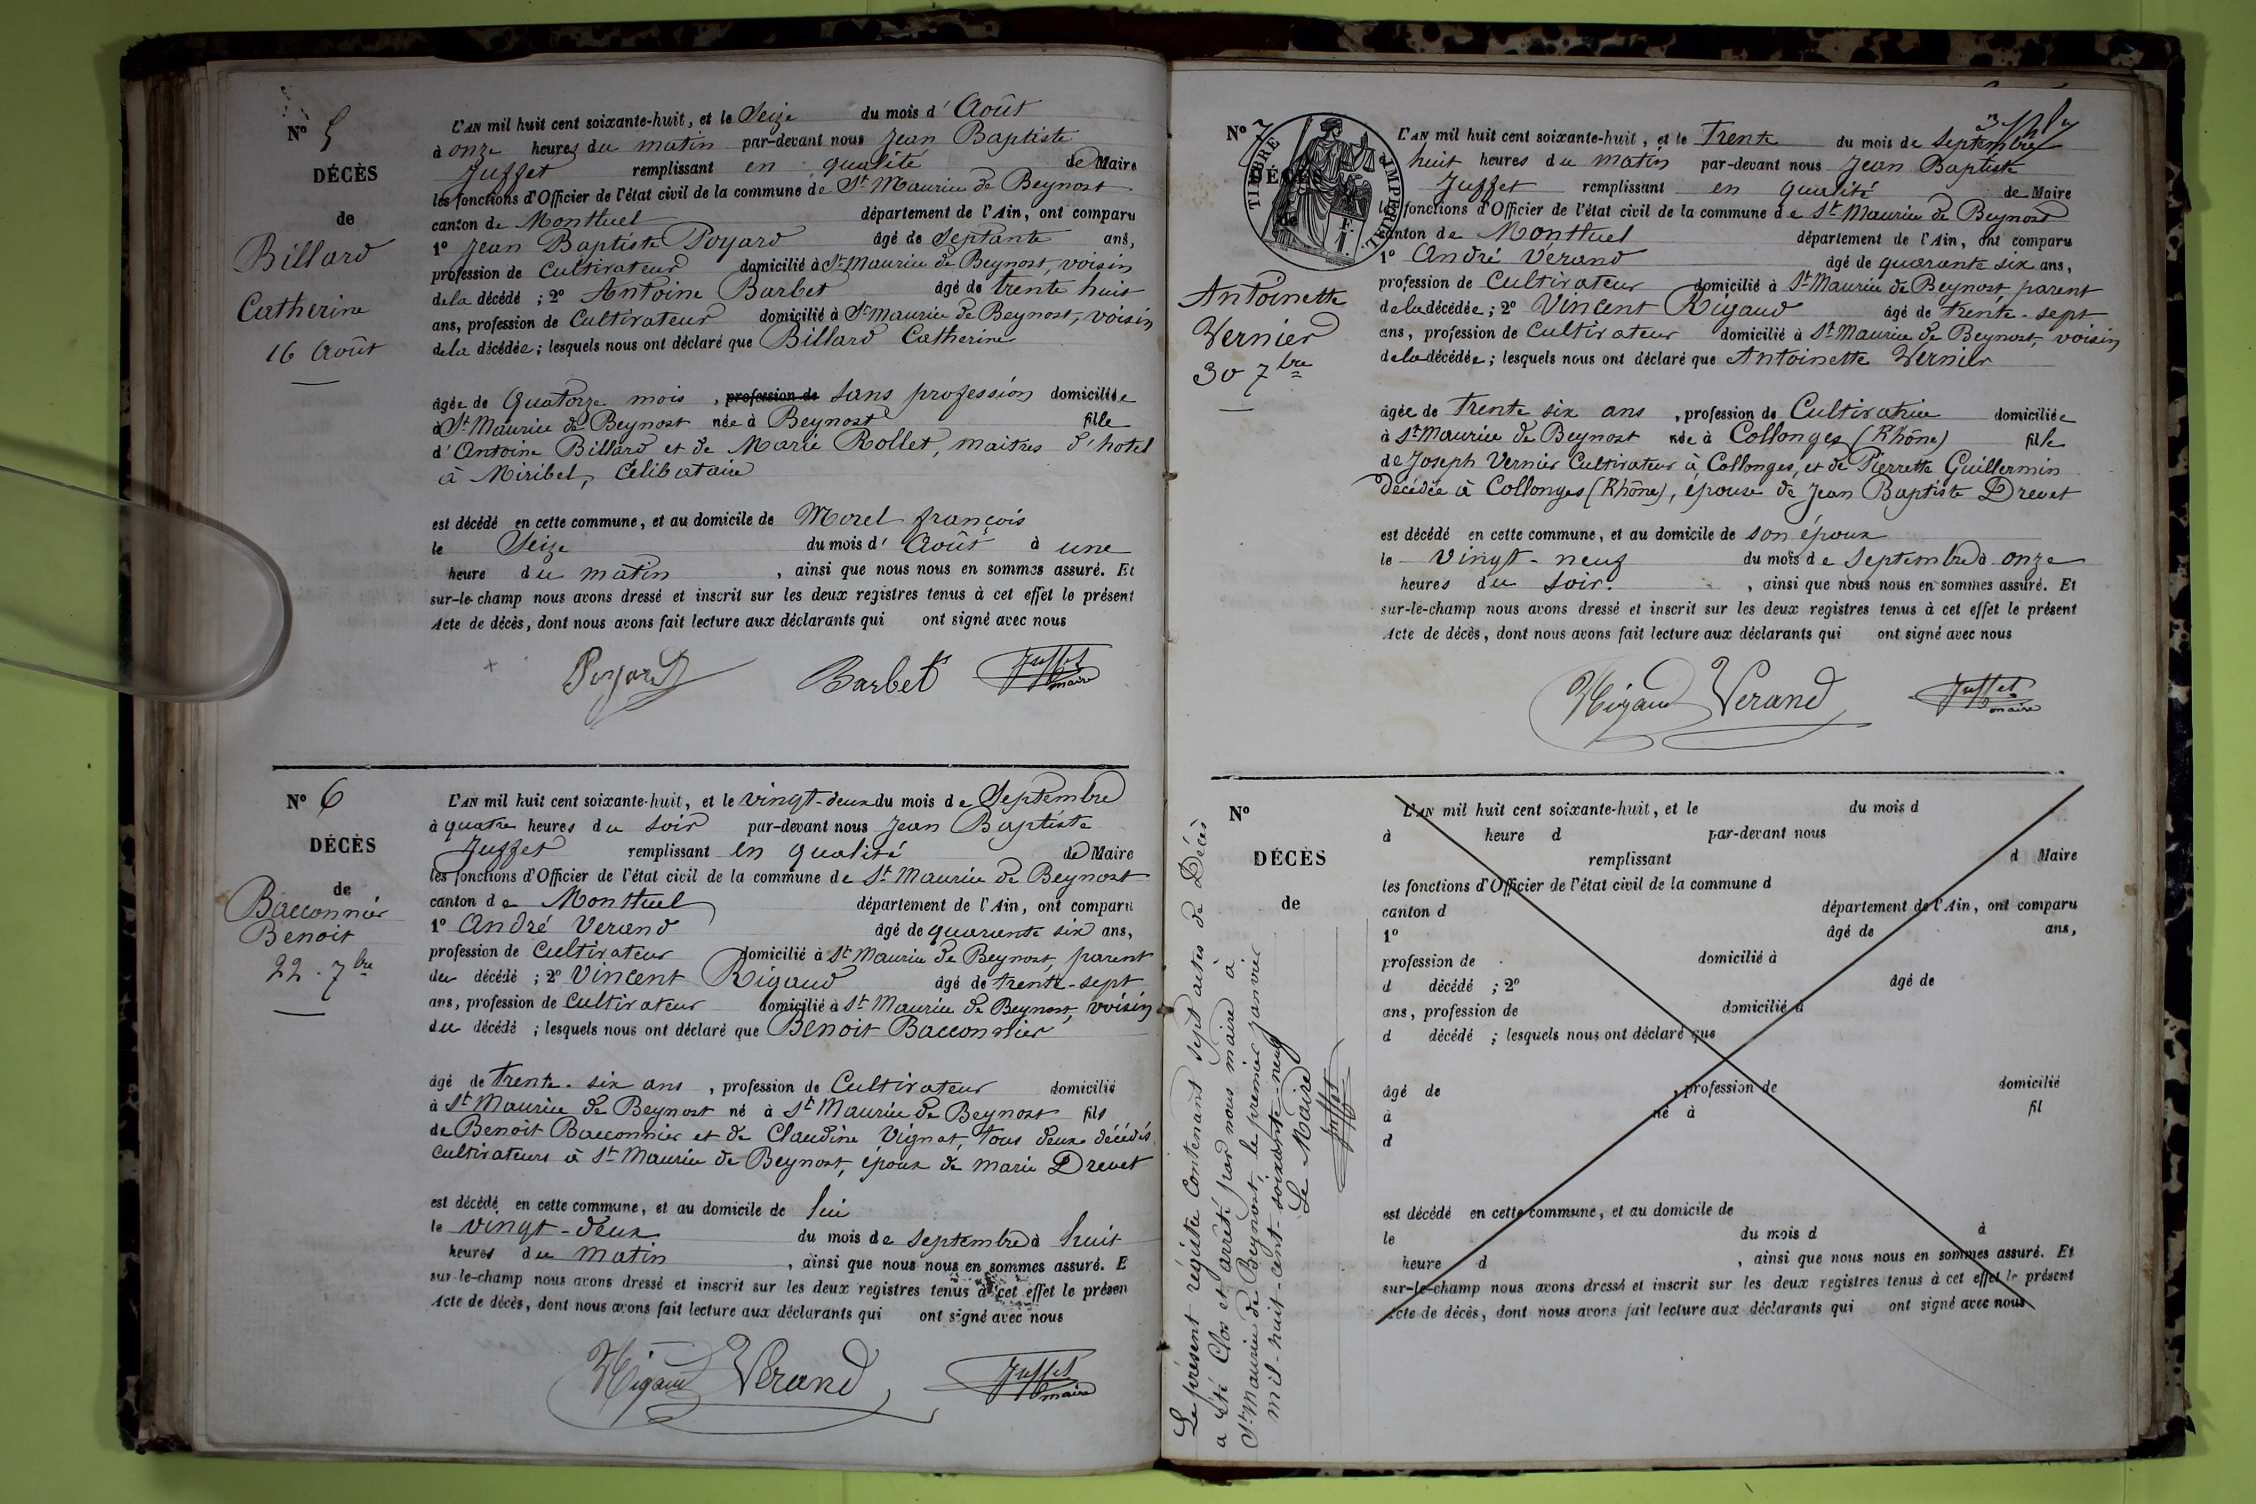 N° 5
DÉCÈS
de
Billard
Catherine
16 Août
L'AN mil huit cent soixante-huit, et le Seize du mois d'Août
à onze heures du matin par-devant nous Jean Baptiste
Juffet remplissant en qualité de Maire
les fonctions d'Officier de l'état civil de la commune de St Maurice de Beynost
canton de Montluel département de l'Ain, ont comparu
1° Jean Baptiste Poyard âgé de Septante ans,
profession de Cultivateur domicilié à St Maurice de Beynost, voisin
de la décédé ; 2° Antoine Barbet âgé de trente huit
ans, profession de Cultivateur domicilié à St Maurice de Beynost, voisin
de la décédée ; lesquels nous ont déclaré que Billard Catherine
âgée de Quatorze mois , profession de Sans profession domiciliée
à St Maurice de Beynost née à Beynost fille
d'Antoine Billard et de Marie Rollet, maitres d'hotel
à Miribel, Célibataire
est décédé en cette commune, et au domicile de Morel françois
le Seize du mois d'Août à une
heure du matin , ainsi que nous nous en sommes assuré. Et
sur-le-champ nous avons dressé et inscrit sur les deux registres tenus à cet effet le présent
Acte de décès, dont nous avons fait lecture aux déclarants qui ont signé avec nous
Poyard Barbet Juffet
maire
N° 6
DÉCÈS
de
Bacconnier
Benoit
22 . 7bre
L'AN mil huit cent soixante-huit, et le vingt-deux du mois de Septembre
à quatre heures du soir par-devant nous Jean Baptiste
Juffet remplissant en qualité de Maire
les fonctions d'Officier de l'état civil de la commune de St Maurice de Beynost
canton de Montluel département de l'Ain, ont comparu
1° André Verand âgé de quarante six ans,
profession de Cultivateur domicilié à St Maurice de Beynost, parent
du décédé ; 2° Vincent Rigaud âgé de trente-sept
ans, profession de Cultivateur domicilié à St Maurice de Beynost, voisin
du décédé ; lesquels nous ont déclaré que Benoit Bacconnier
âgé de trente-six ans , profession de Cultivateur domicilié
à St Maurice de Beynost né à St Maurice de Beynost fils
de Benoit Bacconnier et de Claudine Vignat, tous deux décédés
Cultivateurs à St Maurice de Beynost, époux de Marie Drevet
est décédé en cette commune, et au domicile de lui
le vingt-deux du mois de septembre à huit
heures du matin , ainsi que nous nous en sommes assuré. E
sur-le-champ nous avons dressé et inscrit sur les deux registres tenus à cet effet le présen
Acte de décès, dont nous avons fait lecture aux déclarants qui ont signé avec nous
Rigaud Verand Juffet
maire
N° 7
DÉCÈS
de
TIMBRE IMPÉRIAL
Antoinette
Vernier
30 7bre
L'AN mil huit cent soixante-huit, et le Trente du mois de Septembre
à huit heures du matin par-devant nous Jean Baptiste
Juffet remplissant en qualité de Maire
les fonctions d'Officier de l'état civil de la commune de St Maurice de Beynost
canton de Montluel département de l'Ain, ont comparu
1° André Vérand âgé de quarante six ans,
profession de Cultivateur domicilié à St Maurice de Beynost parent
de la décédée ; 2° Vincent Rigaud âgé de trente-sept
ans, profession de Cultivateur domicilié à St Maurice de Beynost, voisin
de la décédée ; lesquels nous ont déclaré que Antoinette Vernier
âgée de trente six ans , profession de Cultivatrice domiciliée
à St Maurice de Beynost née à Collonges (Rhône) fille
de Joseph Vernier Cultivateur à Collonges, et de Pierrette Guillermin
décédée à Collonges (Rhône), épouse de Jean Baptiste Drevet
est décédé en cette commune, et au domicile de son époux
le vingt-neuf du mois de Septembre à onze
heures du soir. , ainsi que nous nous en sommes assuré. Et
sur-le-champ nous avons dressé et inscrit sur les deux registres tenus à cet effet le présent
Acte de décès, dont nous avons fait lecture aux déclarants qui ont signé avec nous
Rigaud Verand Juffet
maire
N°
DÉCÈS
de
L'AN mil huit cent soixante-huit, et le du mois d
à heure d par-devant nous
remplissant d Maire
les fonctions d'Officier de l'état civil de la commune d
canton d département de l'Ain, ont comparu
1° âgé de ans,
profession de domicilié à
d décédé ; 2° âgé de
ans, profession de domicilié à
d décédé ; lesquels nous ont déclaré que
âgé de , profession de domicilié
à né à fil
d
est décédé en cette commune, et au domicile de
le du mois d à
heure d , ainsi que nous nous en sommes assuré. Et
sur-le-champ nous avons dressé et inscrit sur les deux registres tenus à cet effet le présent
Acte de décès, dont nous avons fait lecture aux déclarants qui ont signé avec nous
Le présent registre contenant sept actes de Décès
a été Clos et arrêté par nous maire à
St Maurice de Beynost, le premier janvier
mil-huit-cent-soixante-neuf
Le Maire
Juffet